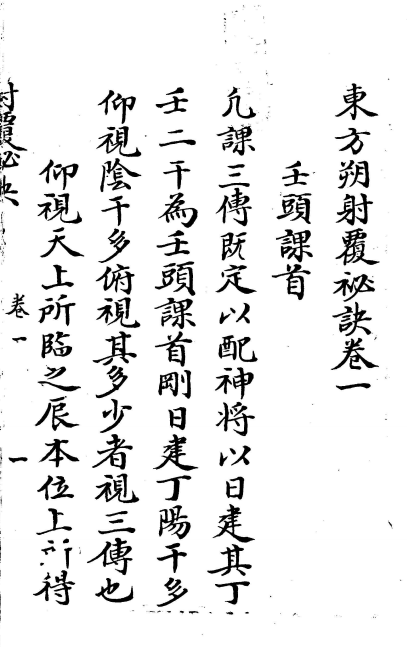 東方朔射覆祕訣卷一
壬頭課首
凢課三傳既定以配神将以日建其丁
壬二干為壬頭課首剛日建丁陽干多
仰視陰干多俯視其多少者視三傳也
仰視天上所臨之辰本位上所得
射覆祕訣
卷一
一